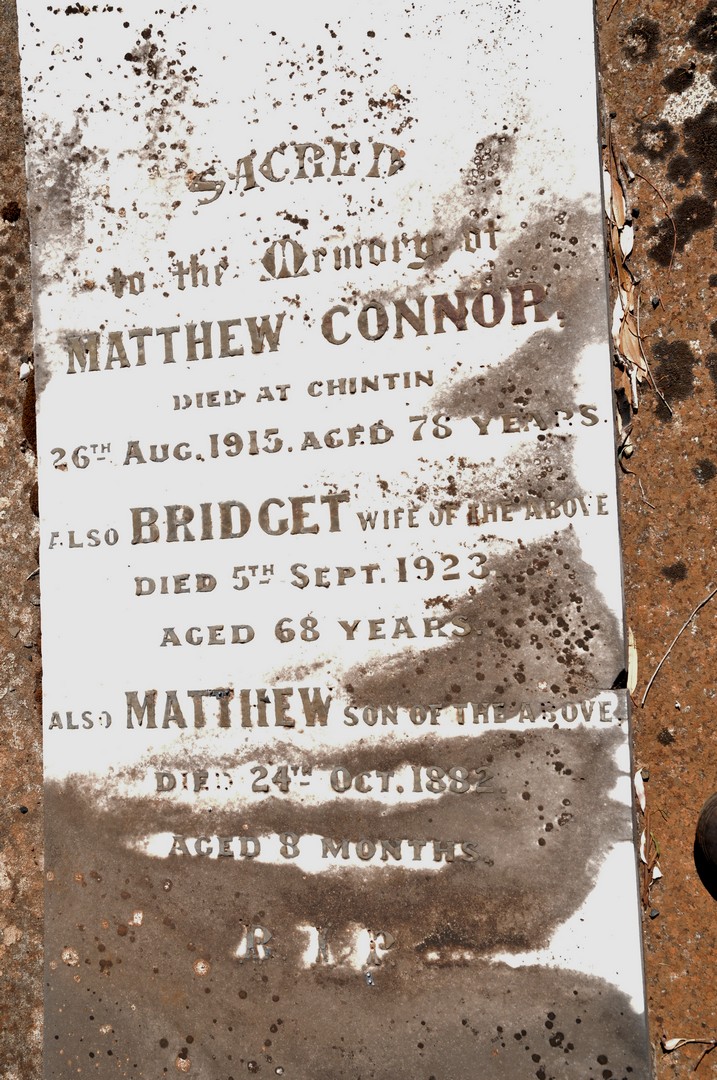 SACRED
to the Memory of
MATTHEW CONNOR,
DIED AT CHINTIN
26TH AUG. 1915. AGED 78 YEARS.
ALSO BRIDGET WIFE OF THE ABOVE
DIED 5TH SEPT. 1923
AGED 68 YEARS.
ALSO MATTHEW SON OF THE ABOVE.
DIED 24TH OCT. 1882.
AGED 8 MONTHS.
R I P